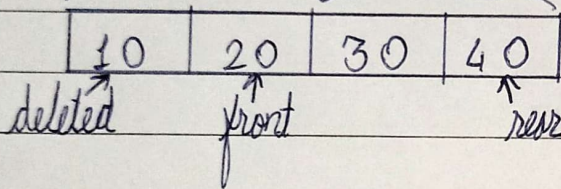 10 20 30 40
deleted front rear